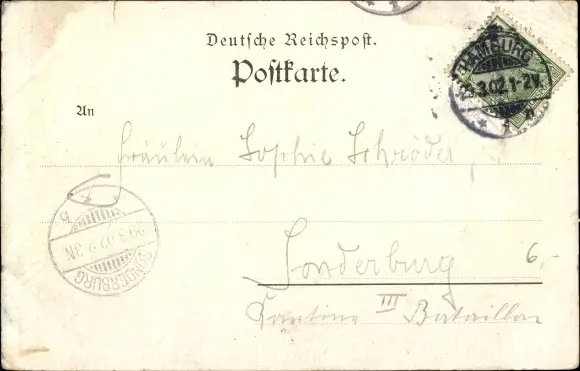 Deutsche Reichspost.
Postkarte.
An
Fräulein Sophie Schröder
Sonderburg
6,-
Kantine III Bataillon
HAMBURG
3.02.1-2N
SONDERBURG
29.3.02.2-3N
b